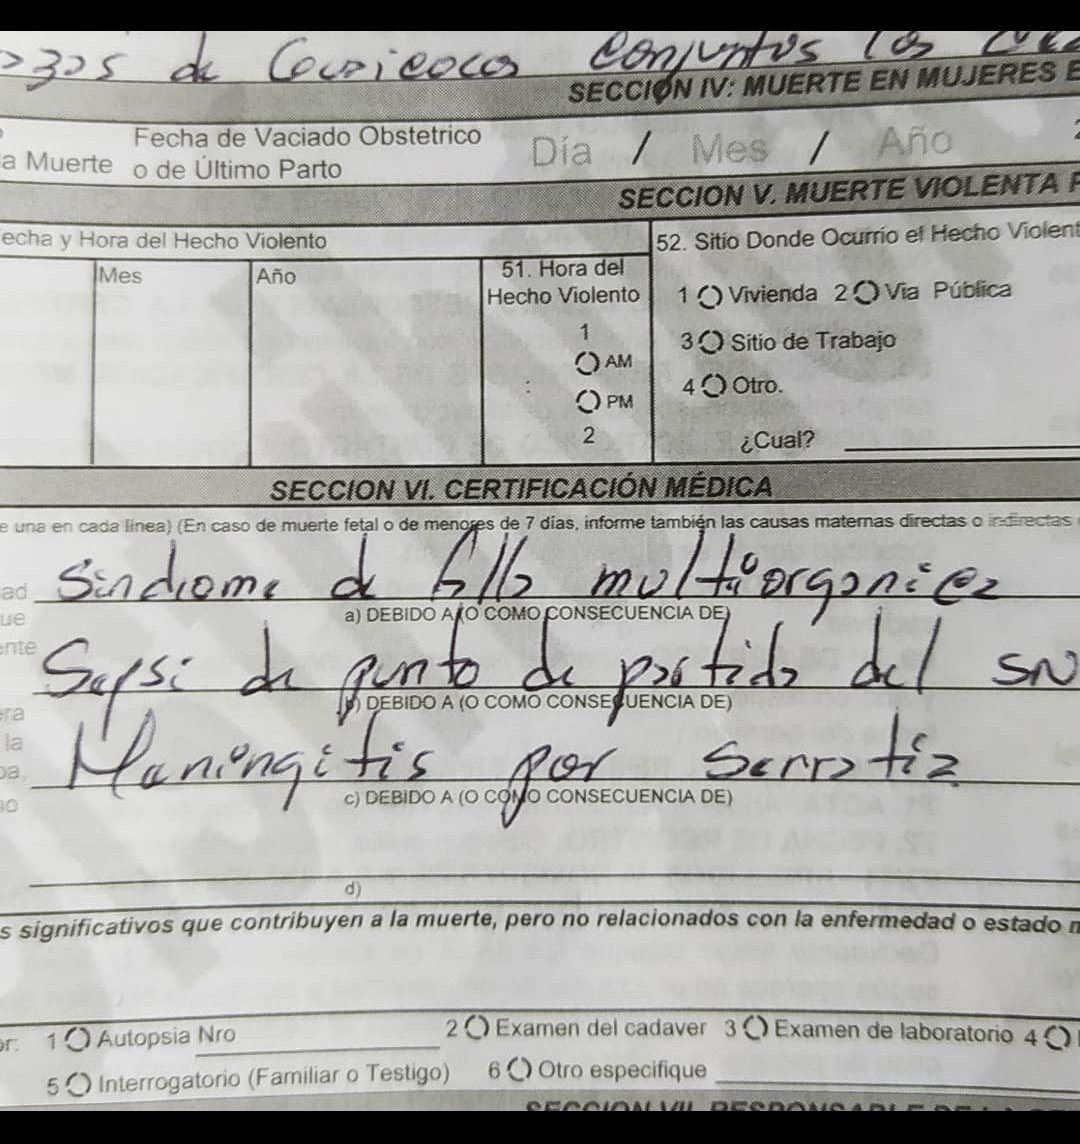 de conjuntos los
SECCIÓN IV: MUERTE EN MUJERES E
Fecha de Vaciado Obstetrico
a Muerte o de Último Parto Día / Mes / Año
SECCION V. MUERTE VIOLENTA
echa y Hora del Hecho Violento
52. Sitio Donde Ocurrio el Hecho Violent
Mes Año 51. Hora del
Hecho Violento
1 Vivienda 2 Via Pública
1
AM
3 Sitio de Trabajo
:
PM
4 Otro.
2
¿Cual?
SECCION VI. CERTIFICACIÓN MÉDICA
e una en cada linea) (En caso de muerte fetal o de menores de 7 días, informe también las causas maternas directas o indirectas
ad Sindrome de falla multiorganica
ue a) DEBIDO A (O COMO CONSECUENCIA DE)
ente Sepsi de punto de partida del SN
b) DEBIDO A (O COMO CONSECUENCIA DE)
era
la
Meningitis por Serratia
c) DEBIDO A (O COMO CONSECUENCIA DE)
d)
s significativos que contribuyen a la muerte, pero no relacionados con la enfermedad o estado m
or: 1 Autopsia Nro 2 Examen del cadaver 3 Examen de laboratorio 4
5 Interrogatorio (Familiar o Testigo) 6 Otro especifique